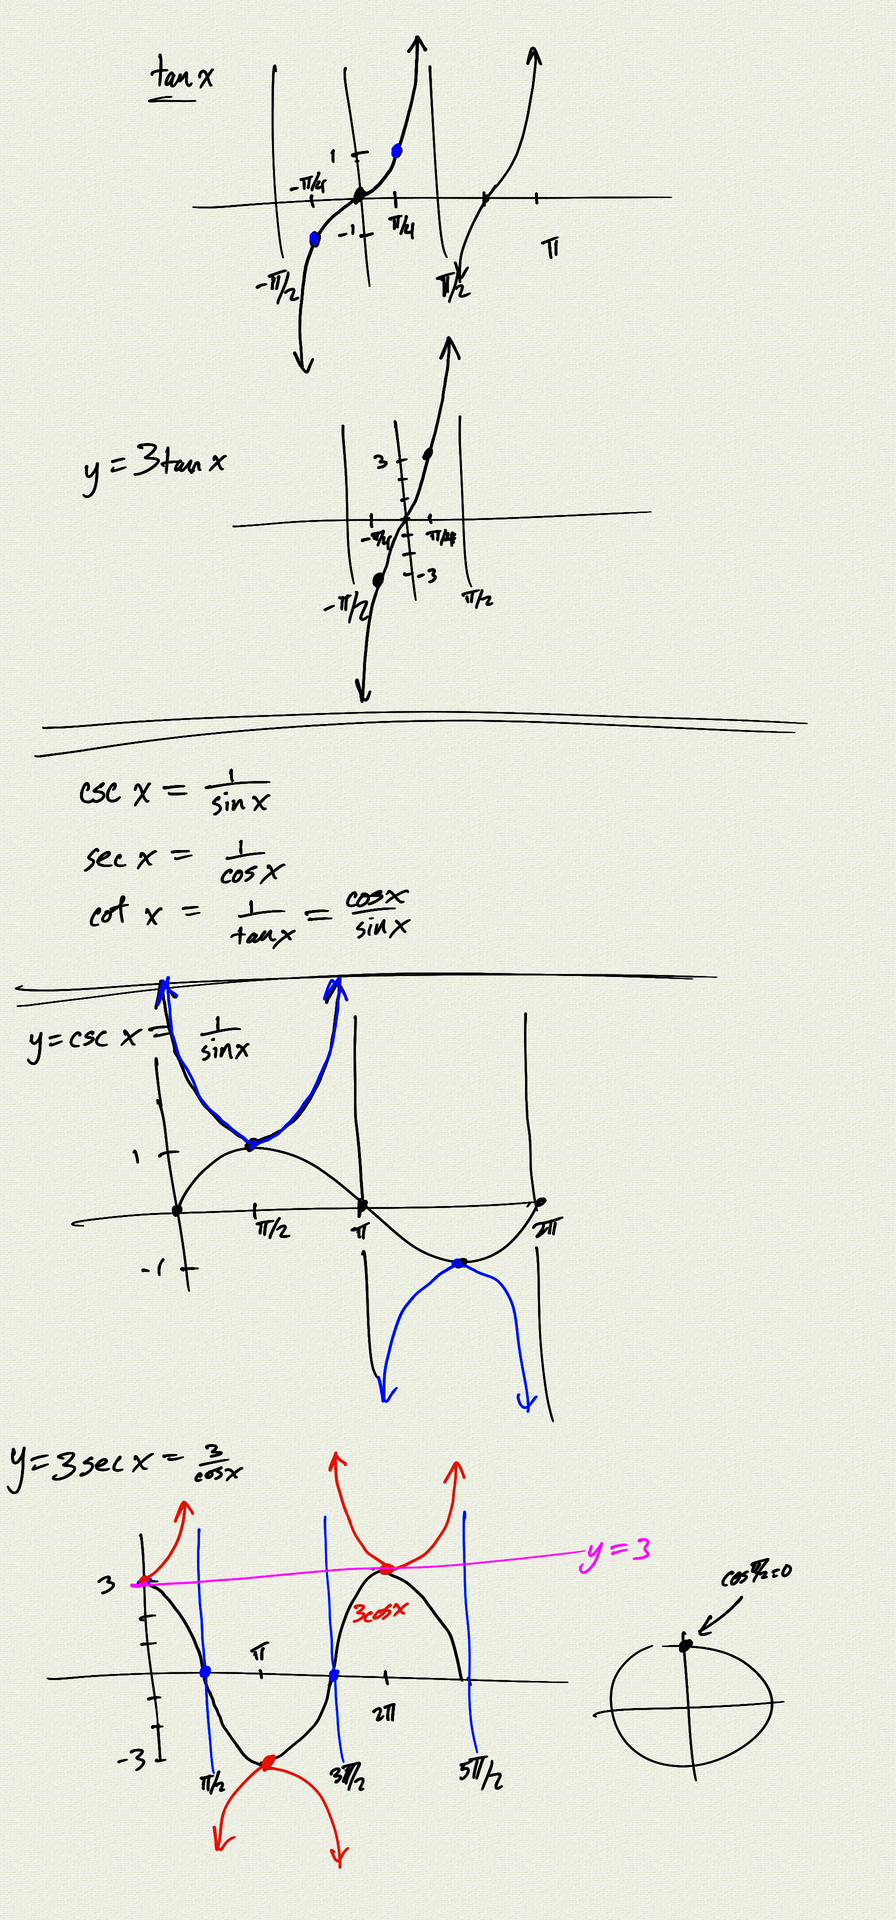 tan x
1
-π/4
π/4
-1
π
-π/2
π/2
y = 3tan x
3
-π/4
π/4
-3
-π/2
π/2
csc x = 1/sin x
sec x = 1/cos x
cot x = 1/tan x = cos x/sin x
y = csc x = 1/sin x
1
π/2
π
2π
-1
y = 3 sec x = 3/cos x
y = 3
3
cos π/2 = 0
3cos x
π
2π
-3
π/2
3π/2
5π/2